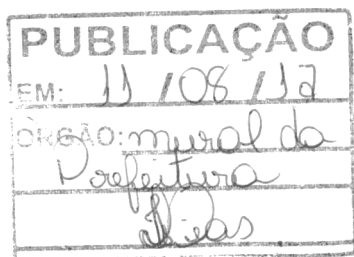 PUBLICAÇÃO
EM: 11 / 08 / 17
ÓRGÃO: mural da
Prefeitura